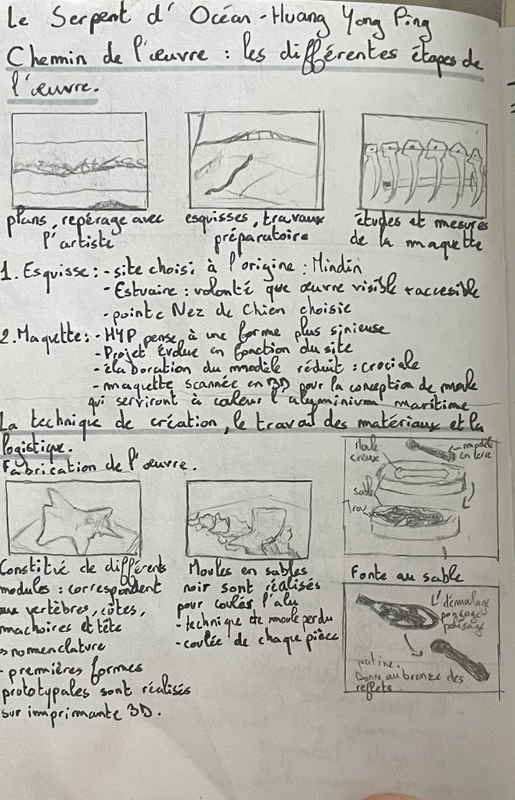 Le Serpent d'Océan - Huang Yong Ping
Chemin de l'œuvre : les différentes étapes de
l'œuvre.
plans, repérage avec
l'artiste
esquisses, travaux
préparatoire
études et mesures
de la maquette
1. Esquisse : - site choisi à l'origine : Mindin
- Estuaire : volonté que œuvre visible + accesible
- pointe Nez de Chien choisie
2. Maquette : - HYP pense à une forme plus sinieuse
- Projet évolue en fonction du site
- élaboration du modèle réduit : cruciale
- maquette scannée en 3D pour la conception de moule
qui serviront à couler l'aluminium maritime
La technique de création, le travail des matériaux et la
logistique.
Fabrication de l'œuvre.
Moule
creux
modèle
en terre
sable
Constitué de différents
modules : correspondent
aux vertèbres, côtes,
machoires et tête
→ nomenclature
- premières formes
prototypales sont réalisés
sur imprimante 3D.
Moules en sables
noir sont réalisés
pour coulés l'alu
- technique de moule perdu
- coulée de chaque pièce
Fonte au sable
démoulage
ponçage
polissage
patine.
Donne au bronze des
reflets